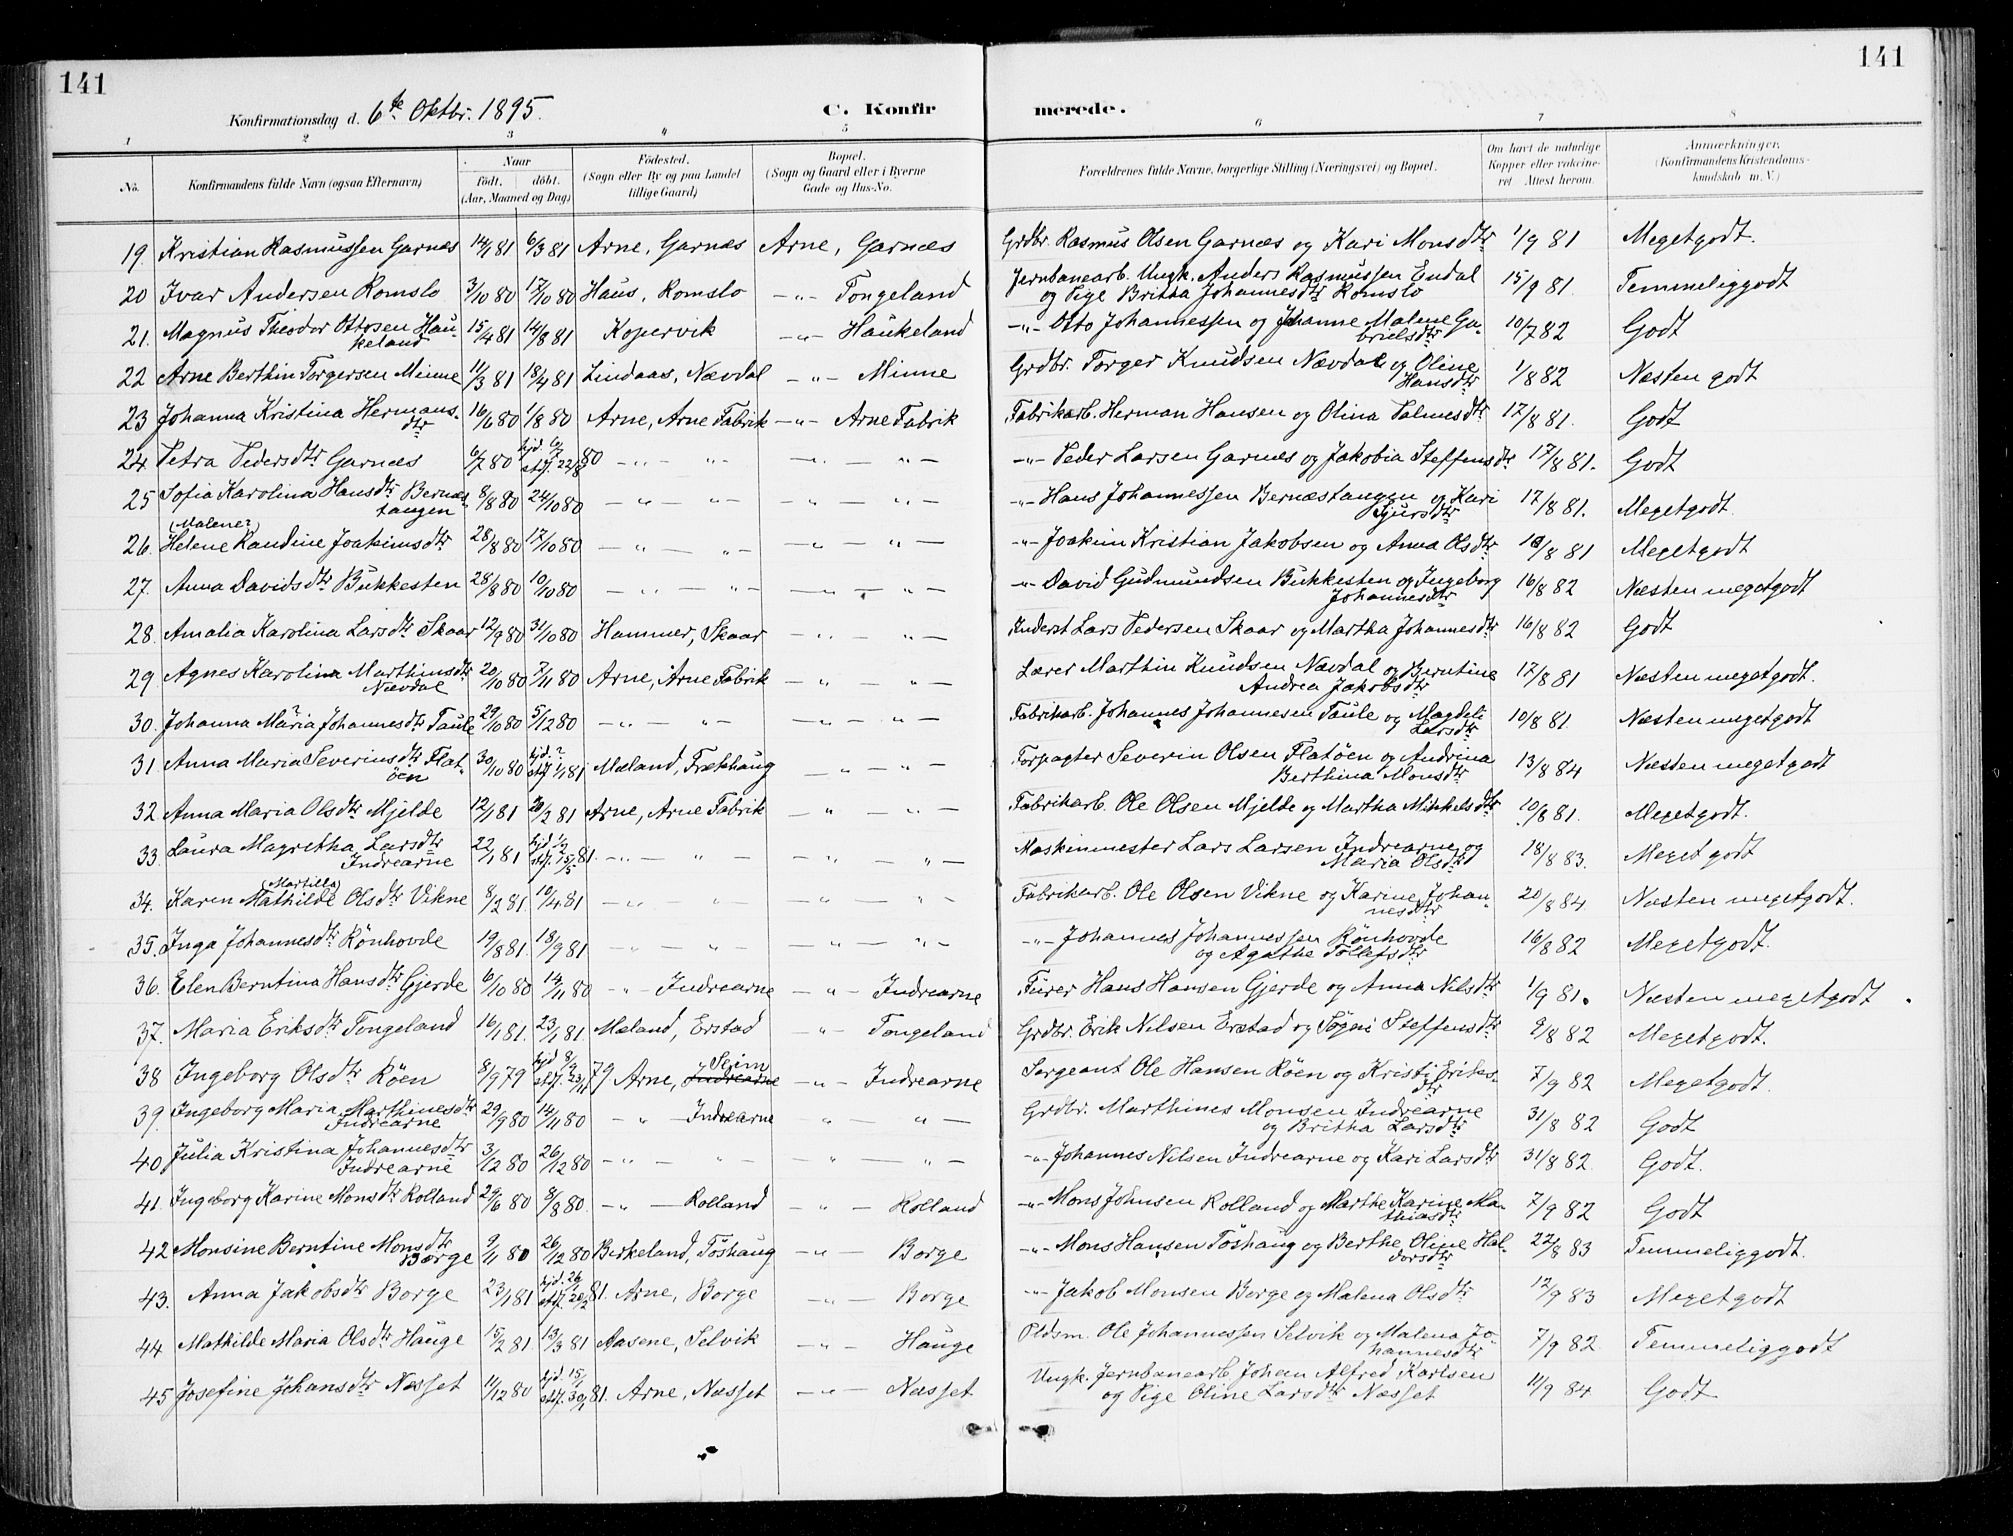 141
141
Konfirmationsdag d. 6te Oktbr. 1895.
C. Konfirmerede.
1 2 3 4 5 6 7 8
No. Konfirmandens fulde Navn (ogsaa Efternavn) Naar født. døbt. (Aar, Maaned og Dag) Fødested. (Sogn eller By og paa Landet tillige Gaard) Bopæl. (Sogn og Gaard eller i Byerne Gade og Hus-No. Forældrenes fulde Navne, borgerlige Stilling (Næringsvei) og Bopæl. Om havt de naturlige Kopper eller vakcineret. Attest herom. Anmærkninger. (Konfirmandens Kristendomskundskab m. V.)
19. Kristian Rasmussen Garnæs 14/1 81 6/3 81 Arne, Garnæs Arne, Garnæs Grdbr. Rasmus Olsen Garnæs og Kari Monsdtr 1/9 81 Megetgodt.
20 Ivar Andersen Romslo 3/10 80 17/10 80 Haus, Romslo -"- Tongeland Jernbanearb. Ungk. Anders Rasmussen Endal og Pige Britha Johannesdtr Romslo 15/9 81 Temmeliggodt
21. Magnus Theodor Ottosen Haukeland 15/4 81 14/8 81 Kopervik -"- Haukeland -"- Otto Johannessen og Johanne Malene Gabrielsdtr 10/7 82 Godt
22 Arne Berthin Torgersen Minne 11/3 81 18/4 81 Lindaas, Nævdal -"- Minne Grdbr. Torger Knudsen Nævdal og Oline Hansdtr 1/8 82 Næsten godt
23 Johanna Kristina Hermansdtr 16/6 80 1/8 80 Arne, Arne Fabrik -"- Arne Fabrik Fabrikarb. Herman Hansen og Olina Salmesdtr 17/8 81. Godt
24. Petra Pedersdtr Garnæs 6/7 80 hjd. 6/7 stf. 22/8 80 -"- "- -"- "- -"- Peder Larsen Garnæs og Jakobia Steffensdtr 17/8 81. Godt
25 Sofia Karolina Hansdtr Bernæstangen 8/8 80 24/10 80 -"- "- -"- "- -"- Hans Johannessen Bernæstangen og Kari Sjursdtr 17/8 81. Megetgodt
26. Helene (Malene?) Randine Joakimsdtr 28/8 80 17/10 80 -"- "- -"- "- -"- Joakim Kristian Jakobsen og Anna Olsdtr /8 81 Megetgodt
27. Anna Davidsdtr Bukkesten 28/8 80 10/10 80 -"- "- -"- "- -"- David Gudmundsen Bukkesten og Ingeborg Johannesdtr 16/8 82 Næsten megetgodt
28. Amalia Karolina Larsdtr Skaar 12/9 80 31/10 80 Hammer, Skaar -"- "- Inderst Lars Pedersen Skaar og Martha Johannesdtr 16/8 82 Godt
29 Agnes Karolina Marthinsdtr Nævdal 20/10 80 7/11 80 Arne, Arne Fabrik -"- "- Lærer Marthin Knudsen Nævdal og Berntine Andrea Jakobsdtr 17/8 81 Næsten megetgodt.
30. Johanna Maria? Johannesdtr Taule 29/10 80 5/12 80 -"- "- -"- "- Fabrikarb. Johannes Johannesen Taule og Magdeli Larsdtr 10/8 81 Næsten megetgodt
31 Anna Maria Severinsdtr Flatöen 30/10 80 hjd. ? stf. 1/1 81 Mæland, Frekhaug -"- "- Forpagter Severin Olsen Flatöen og Andrina Berthina Monsdtr 13/8 84 Næsten megetgodt
32 Anna Maria Olsdtr Mjelde 12/1 81 20/3 81 Arne, Arne Fabrik -"- "- Fabrikarb. Ole Olsen Mjelde og Martha Mikkelsdtr 10/8 81. Megetgodt.
33. Laura Magretha Larsdtr Indrearne 22/1 81 hjd. 1/2 stf. 15/5 81. -"- "- -"- "- Maskinmester Lars Larsen Indrearne og Maria Olsdtr 18/8 83. Meget godt
34. Karen Mathilde (Martilla) Olsdtr Vikne 8/2 81. 10/4 81 -"- "- -"- "- Fabrikarb. Ole Olsen Vikne og Karine Johannesdtr 20/8 84. Næsten megetgodt.
35. Inga Johannesdtr Rönhovde 19/8 81. 18/9 81 -"- "- -"- "- -"- Johannes Johannessen Rönhovde og Agathe Tollefsdtr 16/8 82 Megetgodt.
36. Elen Berntina Hansdtr Gjerde 6/10 80 14/11 80 -"- Indrearne -"- Indrearne Furer Hans Hansen Gjerde og Anna Nilsdtr 1/9 81. Næsten megetgodt
37. Maria Eriksdtr Tongeland 16/1 81. 23/1 81 Mæland, Erstad -"- Tongeland Grdbr. Erik Nilsen Erstad og Sögni Steffensdtr 9/8 82 Megetgodt.
38 Ingeborg Olsdtr Röen 8/9 79 hjd 8/9 stf. 23/11 79 Arne, Indrearne Seim -"- Indrearne Sergeant Ole Hansen Röen og Kristi Eriksdtr 7/9 82 Megetgodt.
39. Ingeborg Maria Marthinesdtr Indrearne 29/9 80 14/11 80 -"- Indrearne "- "- Grdbr. Marthines Monsen Indrearne og Britha Larsdtr 31/8 82 Godt
40 Julia Kristina Johannesdtr Indrearne 3/12 80 26/12 80 -"- "- -"- "- -"- Johannes Nilsen Indrearne og Kari Larsdtr 31/8 82. Godt.
41. Ingeborg Karine Monsdtr Rolland 29/6 80 8/8 80. -"- Rolland -"- Rolland -"- Mons Johnsen Rolland og Marthe Karine Mathiasdtr 7/9 82 Godt
42 Monsine Berntine Monsdtr Borge 9/11 80 26/12 80 Birkeland, Töshaug -"- Borge -"- Mons Hansen Töshaug og Berthe Oline Haldorsdtr 22/8 83 Temmeliggodt.
43. Anna Jakobsdtr Borge 23/1 81 hjd. 26/1 stf. 20/2 81. Arne, Borge -"- Borge "- Jakob Monsen Borge og Malena Olsdtr 12/9 83 Megetgodt
44 Mathilde Maria Olsdtr Hauge 15/2 81. 13/3 81 Aasene, Selvik -"- Hauge Pldsm. Ole Johannessen Selvik og Malena Johannesdtr 7/9 82 Temmeliggodt
45 Josefine Johansdtr Næsset 11/12 80 hjd. 15/1 stf. 30/1 81. Arne, Næsset -"- Næsset Ungk. Jernbanearb. Johan Alfred Karlsen og Pige Oline Larsdtr Næsset 11/9 84 Godt